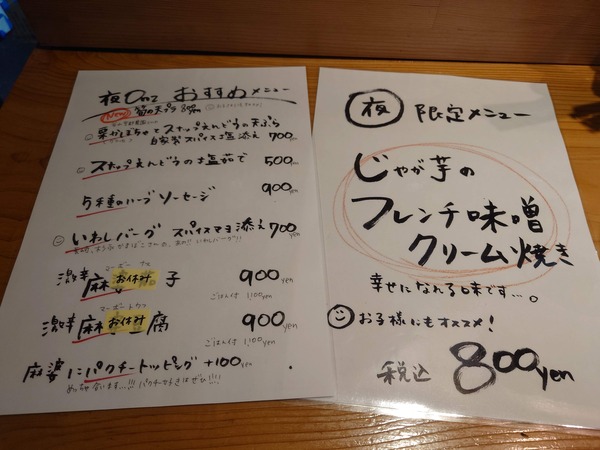 夜Onzおすすめメニュー
New 筍の天プラ 800yen
栗かぼちゃとスナップえんどうの天ぷら
自家製スパイス塩添え 700yen
スナップえんどうの塩茹で 500yen
5種のハーブソーセージ 900yen
いわしバーグ スパイスマヨ添え 700yen
マーボーナス
激辛 麻 お休み 子 900yen
ごはん付 1,100yen
マーボートウフ
激辛 麻 お休み 腐 900yen
ごはん付 1,100yen
麻婆にパクチートッピング +100yen
めっちゃ合います…!!! パクチー好きはぜひ!!!
夜 限定メニュー
じゃが芋の
フレンチ味噌
クリーム焼き
幸せになれる味です…。
お子様にもオススメ!
税込 800yen